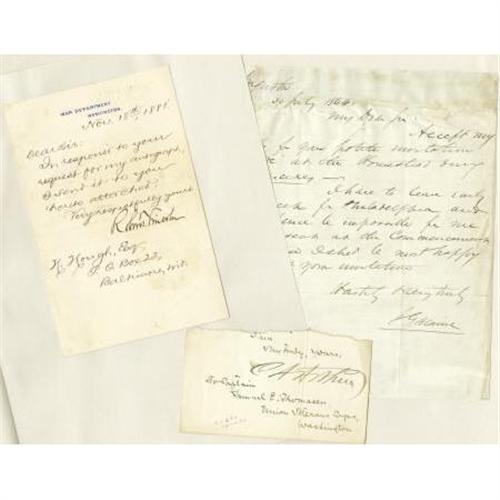 WAR DEPARTMENT
WASHINGTON
Nov. 18th, 1881.
Dear Sir:
In response to your
request for my autograph,
I send it to you
hereto attached.
Very respectfully yours
H. Hough, Esq
P. O. Box 25,
Baltimore, Md.
July 1864
My Dear Sir
Accept my
for your polite invitation
at the Homestead during
I have to leave early
for Philadelphia and
be impossible for me
at the Commencement
I shd be most happy
your invitation
Very truly yours,
C A Arthur
To Captain
Samuel E. Thomason
Union Veterans Corps,
Washington